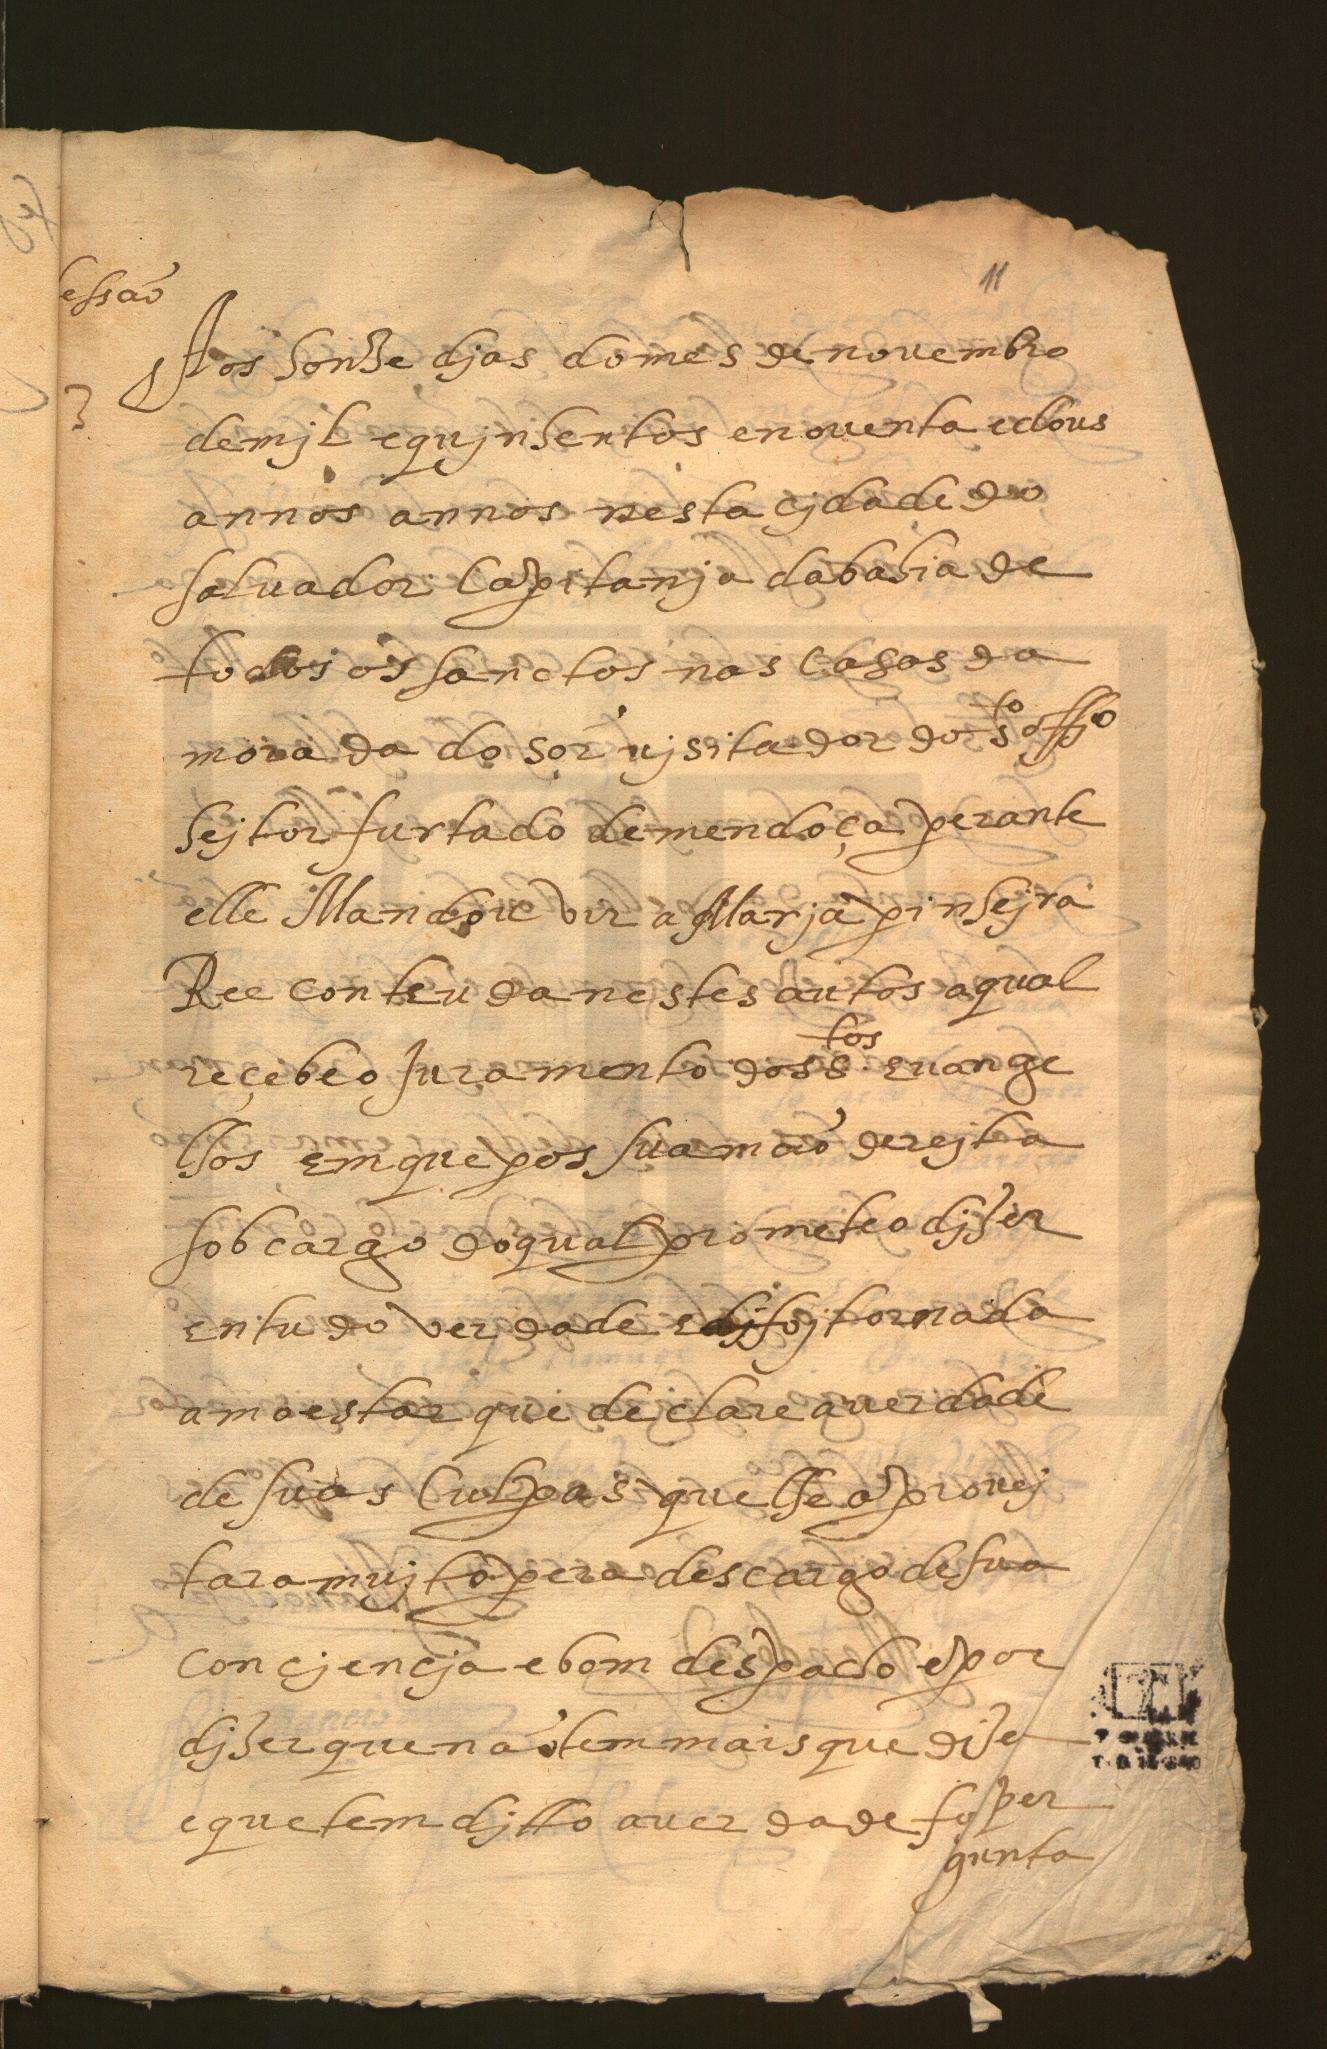 11
sessaõ
Aos honze djas do mes de novembro
3
de mjl e qujnhentos e noventa e dous
annos annos nesta cjdade do
saluador Capitanja da bahia de
todos os sanctos nas Casas da
morada do sor ujsitador do sto offo
hejtor furtado de mendoça perante
elle Mandou vir a Marja pinhejra
Ree conteuda nestes autos a qual
reçebeo Juramento dos stos euange
lhos em que pos sua maõ derejta
sob cargo do qual prometeo djzer
em tudo verdade e foj tornada
amoestar que declare a verdade
de suas Culpas que lhe aprouej
tara mujto pera descargo de sua
concjencja e bom despacho e por
djzer que naõ tem mais que dizer
e que tem djtto a uerdade foj per
gunta